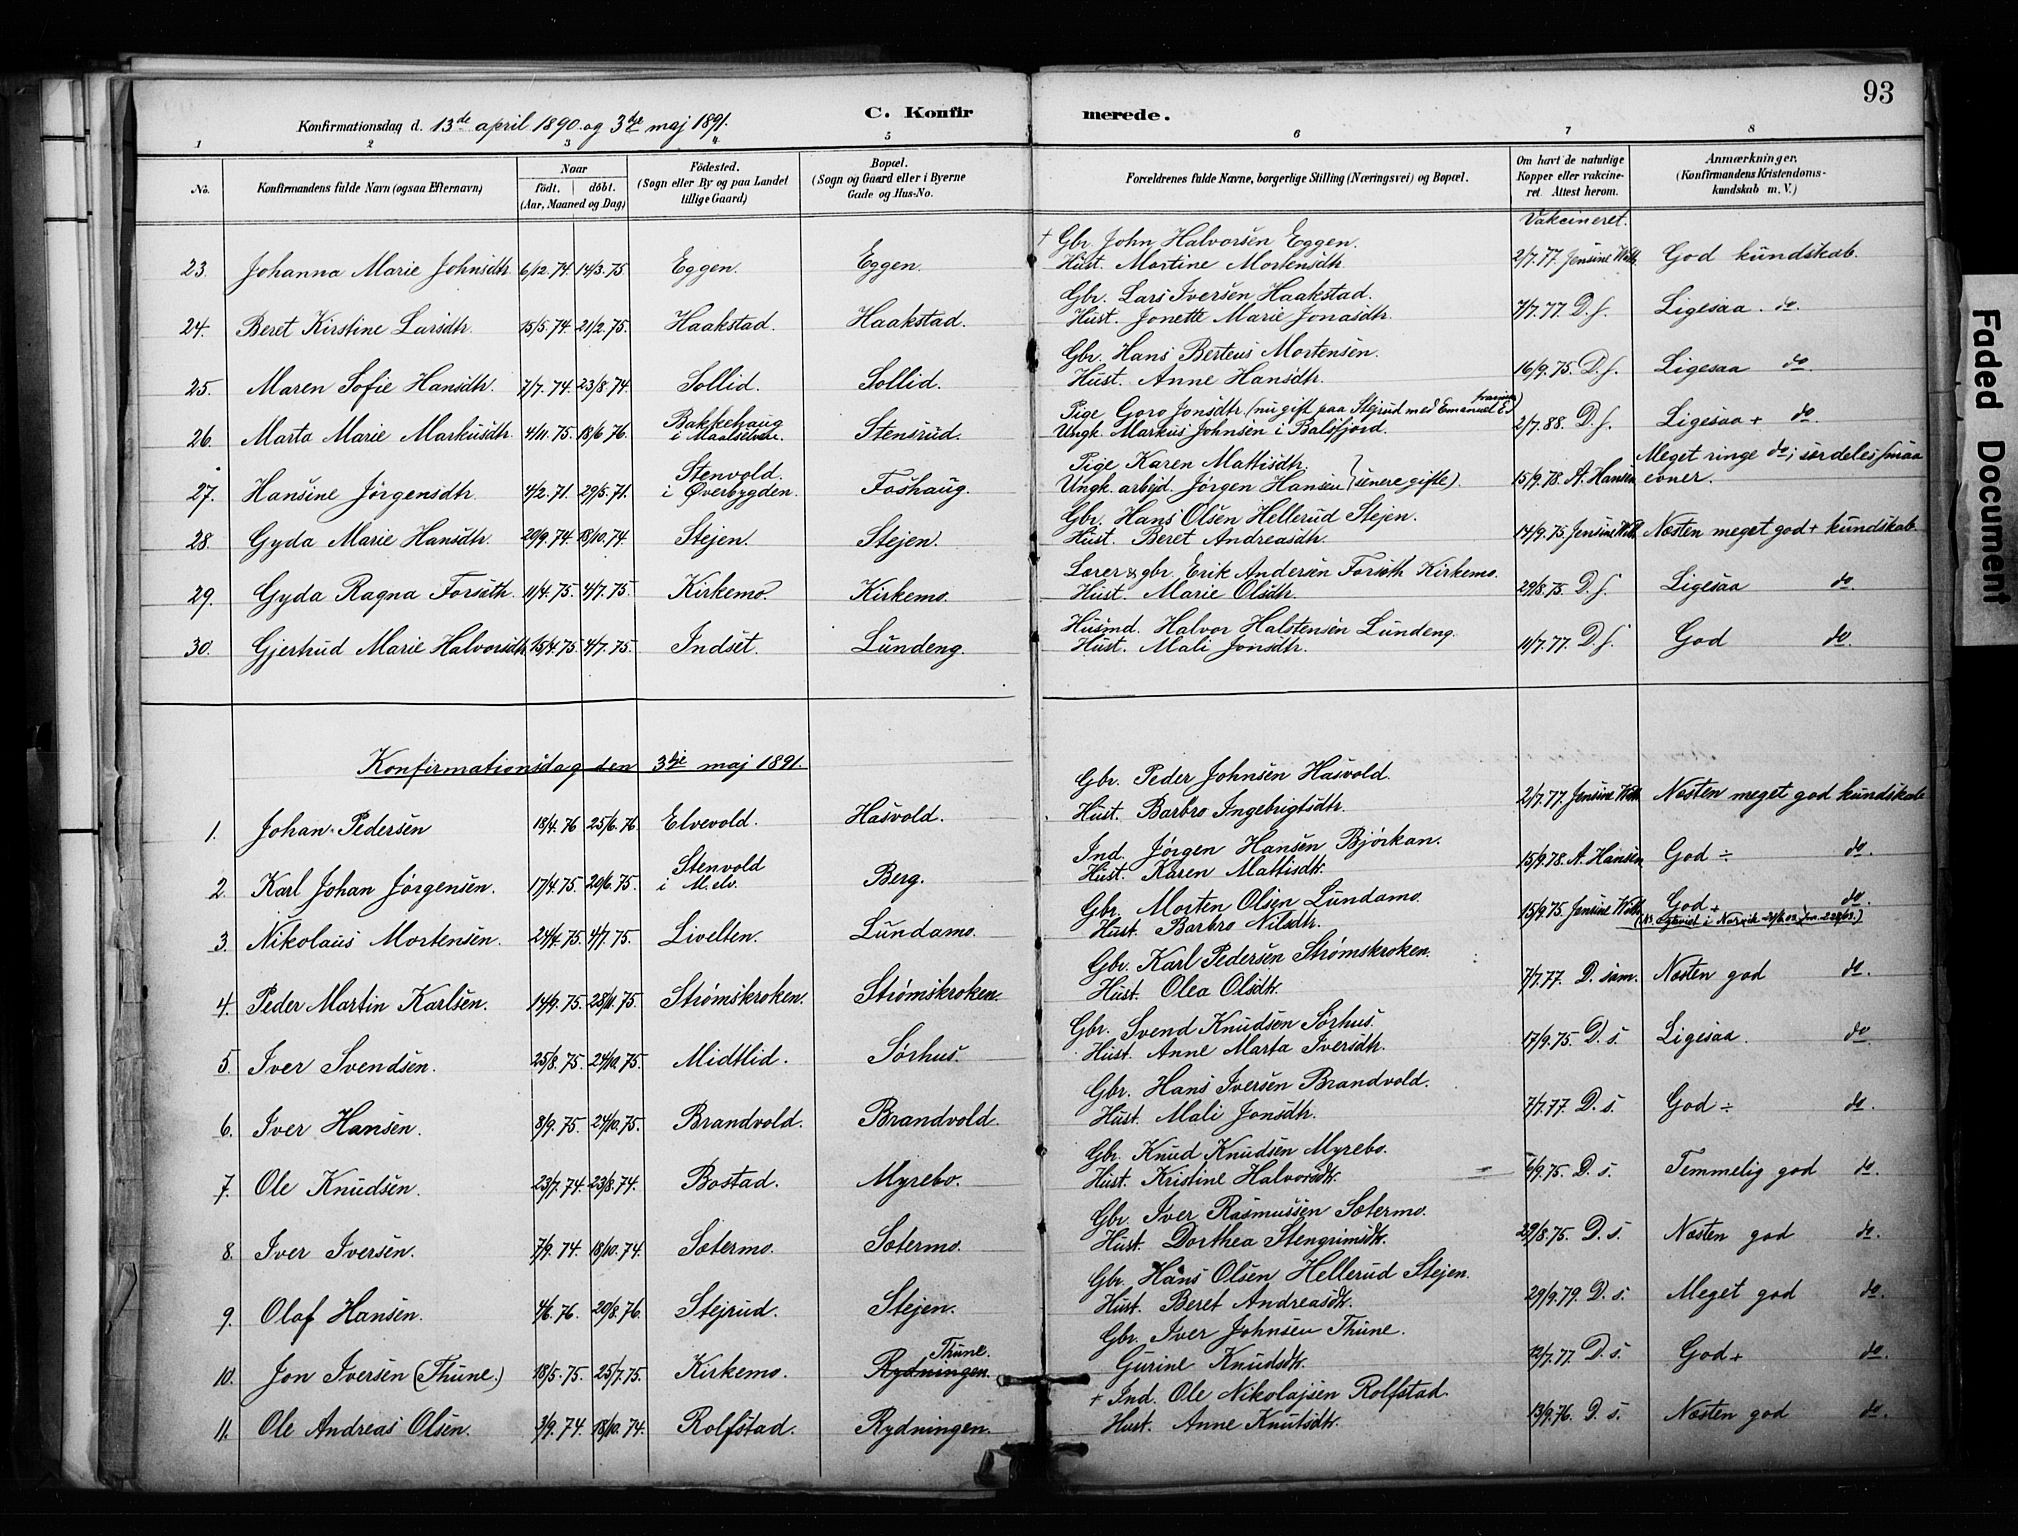 93
Konfirmationsdag d. 13de april 1890 og 3die maj 1891.
C. Konfirmerede.
1 2 3 4 5 6 7 8
No.
Konfirmandens fulde Navn (ogsaa Efternavn)
Naar
födt. döbt.
(Aar, Maaned og Dag)
Födested.
(Sogn eller By og paa Landet tillige Gaard)
Bopæl.
(Sogn og Gaard eller i Byerne Gade og Hus-No.
Forældrenes fulde Navne, borgerlige Stilling (Næringsvei) og Bopæl.
Om havt de naturlige Kopper eller vakcineret. Attest herom.
Anmærkninger.
(Konfirmandens Kristendomskundskab m. V.)
Vakcineret.
23. Johanna Marie Johnsdtr. 6/12.74. 14/3.75 Eggen. Eggen. † Gbr. John Halvorsen Eggen. Hust. Martine Mortensdtr. 2/7.77. Jensine Wolh. God kundskab.
24. Beret Kirstine Larsdtr. 15/5.74. 21/2.75. Haakstad. Haakstad. Gbr. Lars Iversen Haakstad. Hust. Jonette Marie Jonasdtr. 7/7.77. D. s. Ligesaa. do.
25. Maren Sofie Hansdtr. 7/7.74. 23/8.74. Sollid. Sollid. Gbr. Hans Berteus Mortensen. Hust. Anne Hansdtr. 16/9.75. D. s. Ligesaa do.
26. Marta Marie Markusdtr. 4/11.75. 18/6.76. Bakkehaug i Maalselven. Stensrud. Pige Goro Jonsdtr. (nu gift paa Stejrud med Emanuel Ungk. Markus Johnsen i Balsfjord. 2/7.88. D. s. Ligesaa + do.
27. Hansine Jørgensdtr. 4/2.71. 29/5.71. Stenvold. i Øverbygden. Foshaug. Pige Karen Mattisdtr. Ungk. arbejd. Jørgen Hansen (senere gifte). 15/9.78. A. Hansen Meget ringe do; særdeles smaa evner.
28. Gyda Marie Hansdtr. 20/9.74. 18/10.74. Stejen. Stejen. Gbr. Hans Olsen Hellerud Stejen. Hust. Beret Andreasdtr. 17/9.75. Jensine Wolh. Næsten meget god + kundskab
29. Gyda Ragna Forseth. 11/4.75. 4/7.75. Kirkemo. Kirkemo. Lærer & gbr. Erik Andersen Forseth Kirkemo. Hust. Marie Olsdtr. 29/8.75. D. s. Ligesaa do.
30. Gjertrud Marie Halvorsdtr. 15/4.75. 4/7.75. Indset. Lundeng. Husmd. Halvor Halstensen Lundeng. Hust. Mali Jonsdtr. 11/7.77. D. s. God do.
Konfirmationsdag den 3die maj 1891.
1. Johan Pedersen 18/4.76 25/6.76 Elvevold. Hasvold. Gbr. Peder Johnsen Hasvold. Hust. Barbro Ingebrigtsdtr. 2/7.77. Jensine Wolh. Næsten meget god kundskab
2. Karl Johan Jørgensen. 17/4.75. 20/6.75. Stenvold i M.elv. Berg. Ind. Jørgen Hansen Bjørkan. Hust. Karen Mattisdtr. 15/9.78. A. Hansen God ÷ do.
3. Nikolaus Mortensen. 24/4.75. 4/7.75. Livelten. Lundamo. Gbr. Morten Olsen Lundamo. Hust. Barbro Nilsdtr. 15/9.75. Jensine Wolh. God + do.
4. Peder Martin Karlsen. 14/9.75. 28/11.75. Strømskroken. Strømskroken. Gbr. Karl Pedersen Strømskroken. Hust. Olea Olsdtr. 7/7.77. D. sam. Næsten god do.
5. Iver Svendsen. 25/8.75. 24/10.75. Midtlid. Sørhus. Gbr. Svend Knudsen Sørhus. Hust. Anne Marta Iversdtr. 17/9.75. D. s. Ligesaa. do
6. Iver Hansen. 8/9.75. 24/10.75. Brandvold. Brandvold. Gbr. Hans Iversen Brandvold. Hust. Mali Jonsdtr. 7/7.77. D. s. God ÷ do.
7. Ole Knudsen. 23/7.74. 23/8.74. Bostad. Myrebo. Gbr. Knud Knudsen Myrebo. Hust. Kristine Halvorsdtr. 6/9.75. D. s. Temmelig god do.
8. Iver Iversen. 7/9.74. 18/10.74. Sætermo. Sætermo. Gbr. Iver Rasmussen Sætermo. Hust. Dorthea Stengrimsdtr. 29/8.75. D. s. Næsten god do.
9. Olaf Hansen. 4/6.76. 20/8.76. Stejrud. Stejen. Gbr. Hans Olsen Hellerud Stejen. Hust. Beret Andreasdtr. 29/9.79. D. s. Meget god do.
10. Jon Iversen (Thune.) 18/5.75. 25/7.75. Kirkemo. Thune. Rydningen. Gbr. Iver Johnsen Thune. Gurine Knudsdtr. 12/7.77. D. s. God + do.
11. Ole Andreas Olsen. 3/9.74. 18/10.74. Rolfstad. Rydningen. † Ind. Ole Nikolajsen Rolfstad. Hust. Anne Knutsdtr. 13/9.76. D. s. Næsten god do.
Faded Document